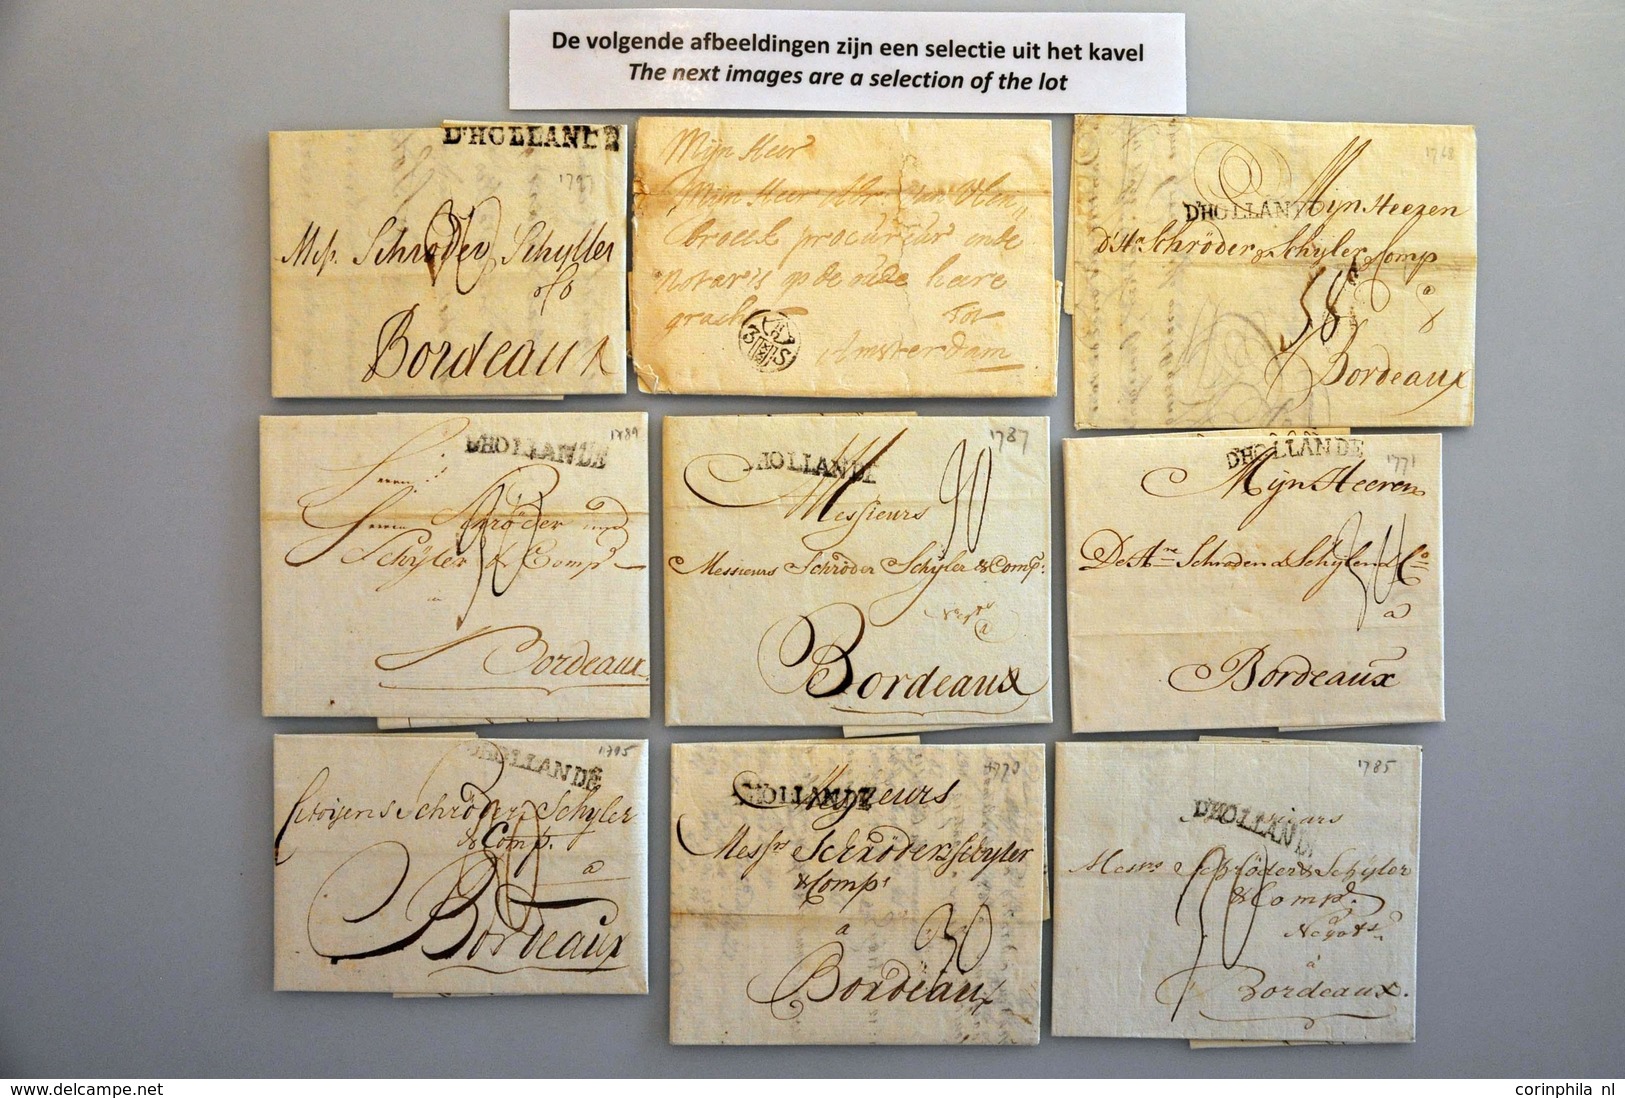 De volgende afbeeldingen zijn een selectie uit het kavel
The next images are a selection of the lot
D'HOLLANDE
1787
Schröder Schyller
Bordeaux
Mijn Heer
Mijn Heer
broeck procureur inde
notaris op de oude heere
gracht tot
Amsterdam
3 S
1768
D'HOLLANDE
Mijn Heeren
Schröder & Schyler & Comp
a
Bordeaux
1789
D'HOLLANDE
Herrn
Herrn Schröder und
Schÿler & Comp
Bordeaux
1787
D'HOLLANDE
Messieurs
Messieurs Schröder Schÿler & Comp:
a
Bordeaux
D'HOLLANDE
1771
Mijn Heeren
De Hre Schroder & Schyler & Co
a
Bordeaux
1795
D'HOLLANDE
Citoijens Schröder, Schÿler
& Comp.
a
Bordeaux
1770
D'HOLLANDE
Messieurs
Messrs Schröder & Schyler
& Comp
a
30
Bordeaux
1785
D'HOLLANDE
Messieurs
Messrs Schröder & Schÿler
& Comp.
Negots
à
Bordeaux.
corinphila nl